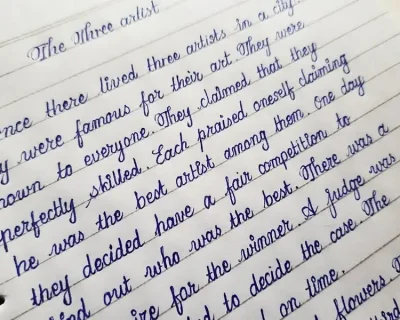 The Three artist
nce there lived three artists in a city.
y were famous for their art. They were
nown to everyone. They claimed that they
perfectly skilled. Each praised oneself claiming
he was the best artist among them. one day
they decided have a fair competition to
ind out who was the best. There was a
ire for the winner. A judge was
d to decide the case. The
d on time.
flowers. T